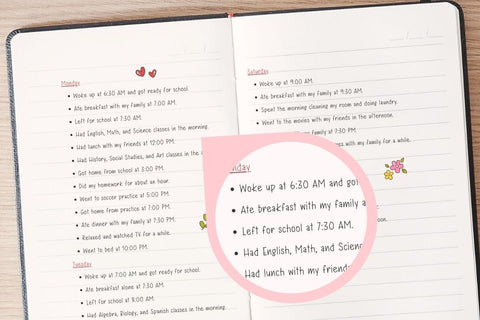 Monday
• Woke up at 6:30 AM and got ready for school.
• Ate breakfast with my family at 7:00 AM.
• Left for school at 7:30 AM.
• Had English, Math, and Science classes in the morning.
• Had lunch with my friends at 12:00 PM.
• Had History, Social Studies, and Art classes in the
• Got home from school at 3:00 PM.
• Did my homework for about an hour.
• Went to soccer practice at 5:00 PM.
• Got home from practice at 7:00 PM.
• Ate dinner with my family at 7:30 PM.
• Relaxed and watched TV for a while.
• Went to bed at 10:00 PM.
Tuesday
• Woke up at 7:00 AM and got ready for school.
• Ate breakfast alone at 7:30 AM.
• Left for school at 8:00 AM.
• Had Algebra, Biology, and Spanish classes in the morning.
Saturday
• Woke up at 9:00 AM.
• Ate breakfast with my family at 9:30 AM.
• Spent the morning cleaning my room and doing laundry.
• Went to the movies with my friends in the afternoon.
family at 7:30 PM.
mes with my family for a while.
nday
• Woke up at 6:30 AM and got
• Ate breakfast with my family a
• Left for school at 7:30 AM.
• Had English, Math, and Scienc
Had lunch with my friends